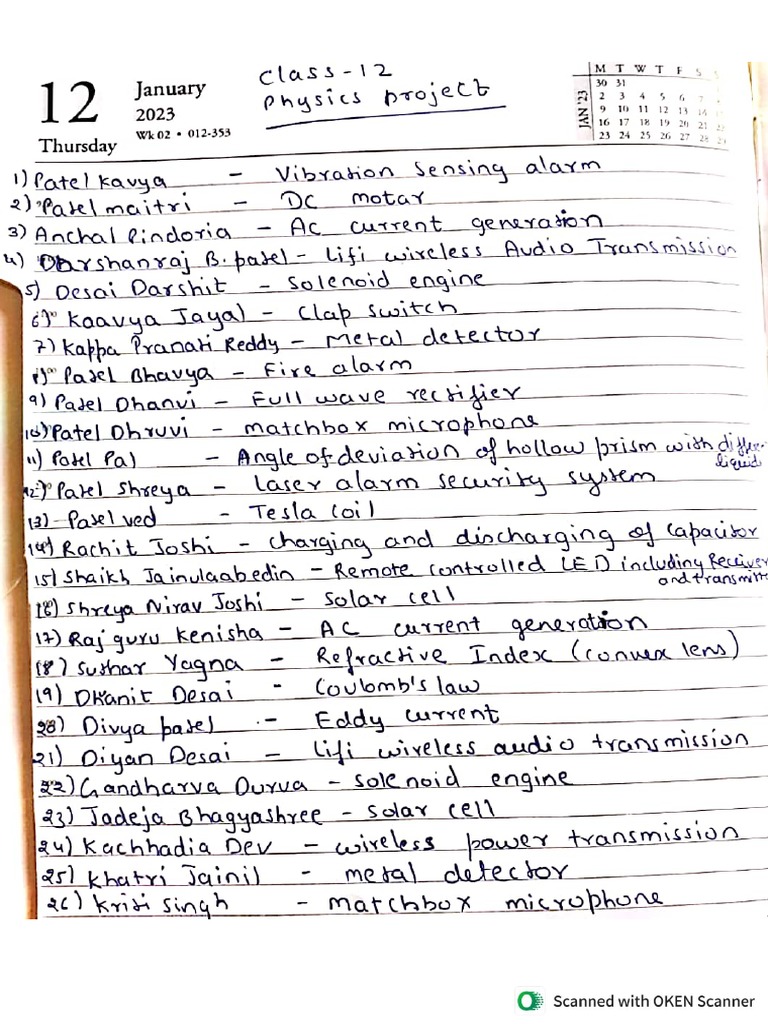 12 January
2023
Wk 02 • 012-353
Thursday
Class-12
Physics project
JAN '23
M T W T F S S
30 31
2 3 4 5 6 7
9 10 11 12 13 14
16 17 18 19 20 21 22
23 24 25 26 27 28 29
1) Patel Kavya - Vibration Sensing alarm
2) Patel maitri - DC motar
3) Anchal Pindoria - AC current generation
4) Darshanraj B. patel - Lifi wireless Audio Transmission
5) Desai Darshit - Solenoid engine
6) Kaavya Jayal - Clap switch
7) Kappa Pranati Reddy - Metal detector
8) Patel Bhavya - Fire alarm
9) Patel Dhanvi - Full wave rectifier
10) Patel Dhruvi - matchbox microphone
11) Patel Pal - Angle of deviation of hollow prism with
liquid
12) Patel Shreya - Laser alarm security system
13) Patel ved - Tesla coil
14) Rachit Joshi - Charging and discharging of capacitor
15) Shaikh Jainulaabedin - Remote controlled LED including Receiver
and transmitte
16) Shreya Nirav Joshi - Solar cell
17) Rajguru Kenisha - AC current generation
18) Suthar Yagna - Refractive Index (convex lens)
19) Dhanit Desai - Coulomb's law
20) Divya patel - Eddy current
21) Diyan Desai - Lifi wireless audio transmission
22) Gandharva Durva - solenoid engine
23) Jadeja Bhagyashree - solar cell
24) Kachhadia Dev - wireless power transmission
25) Khatri Jainil - metal detector
26) Kriti Singh - matchbox microphone
Scanned with OKEN Scanner